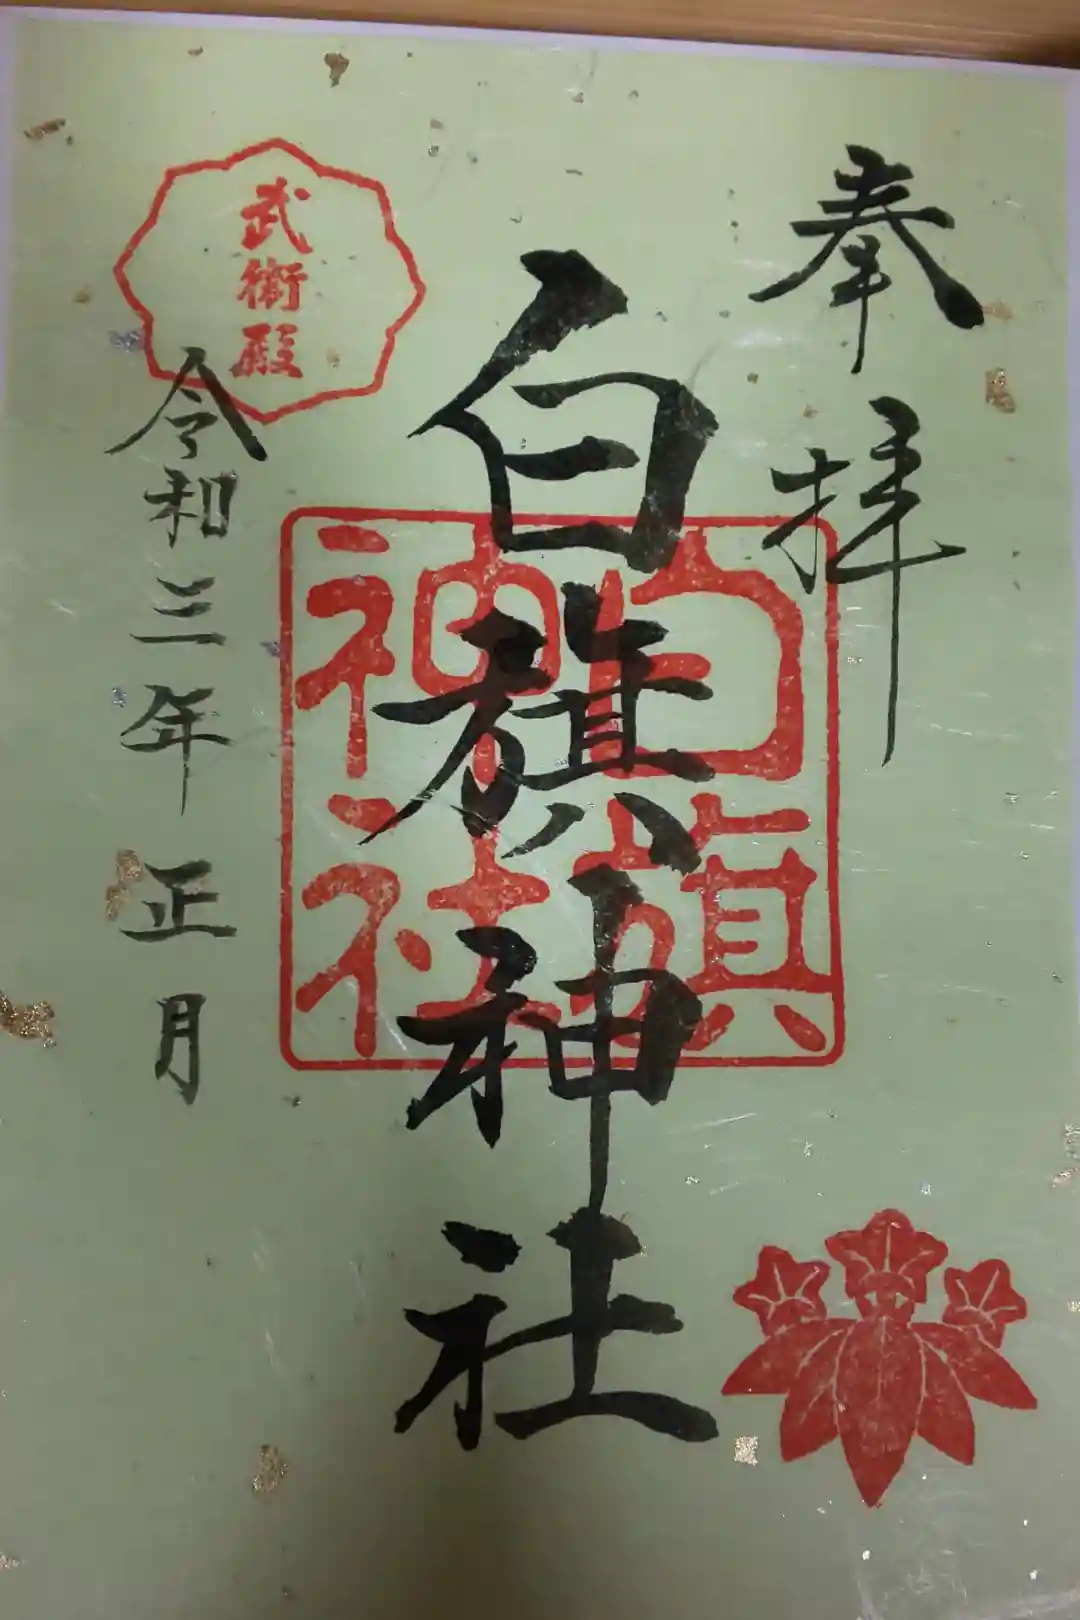 奉拝
白旗神社
白旗神社
武術殿
令和三年正月